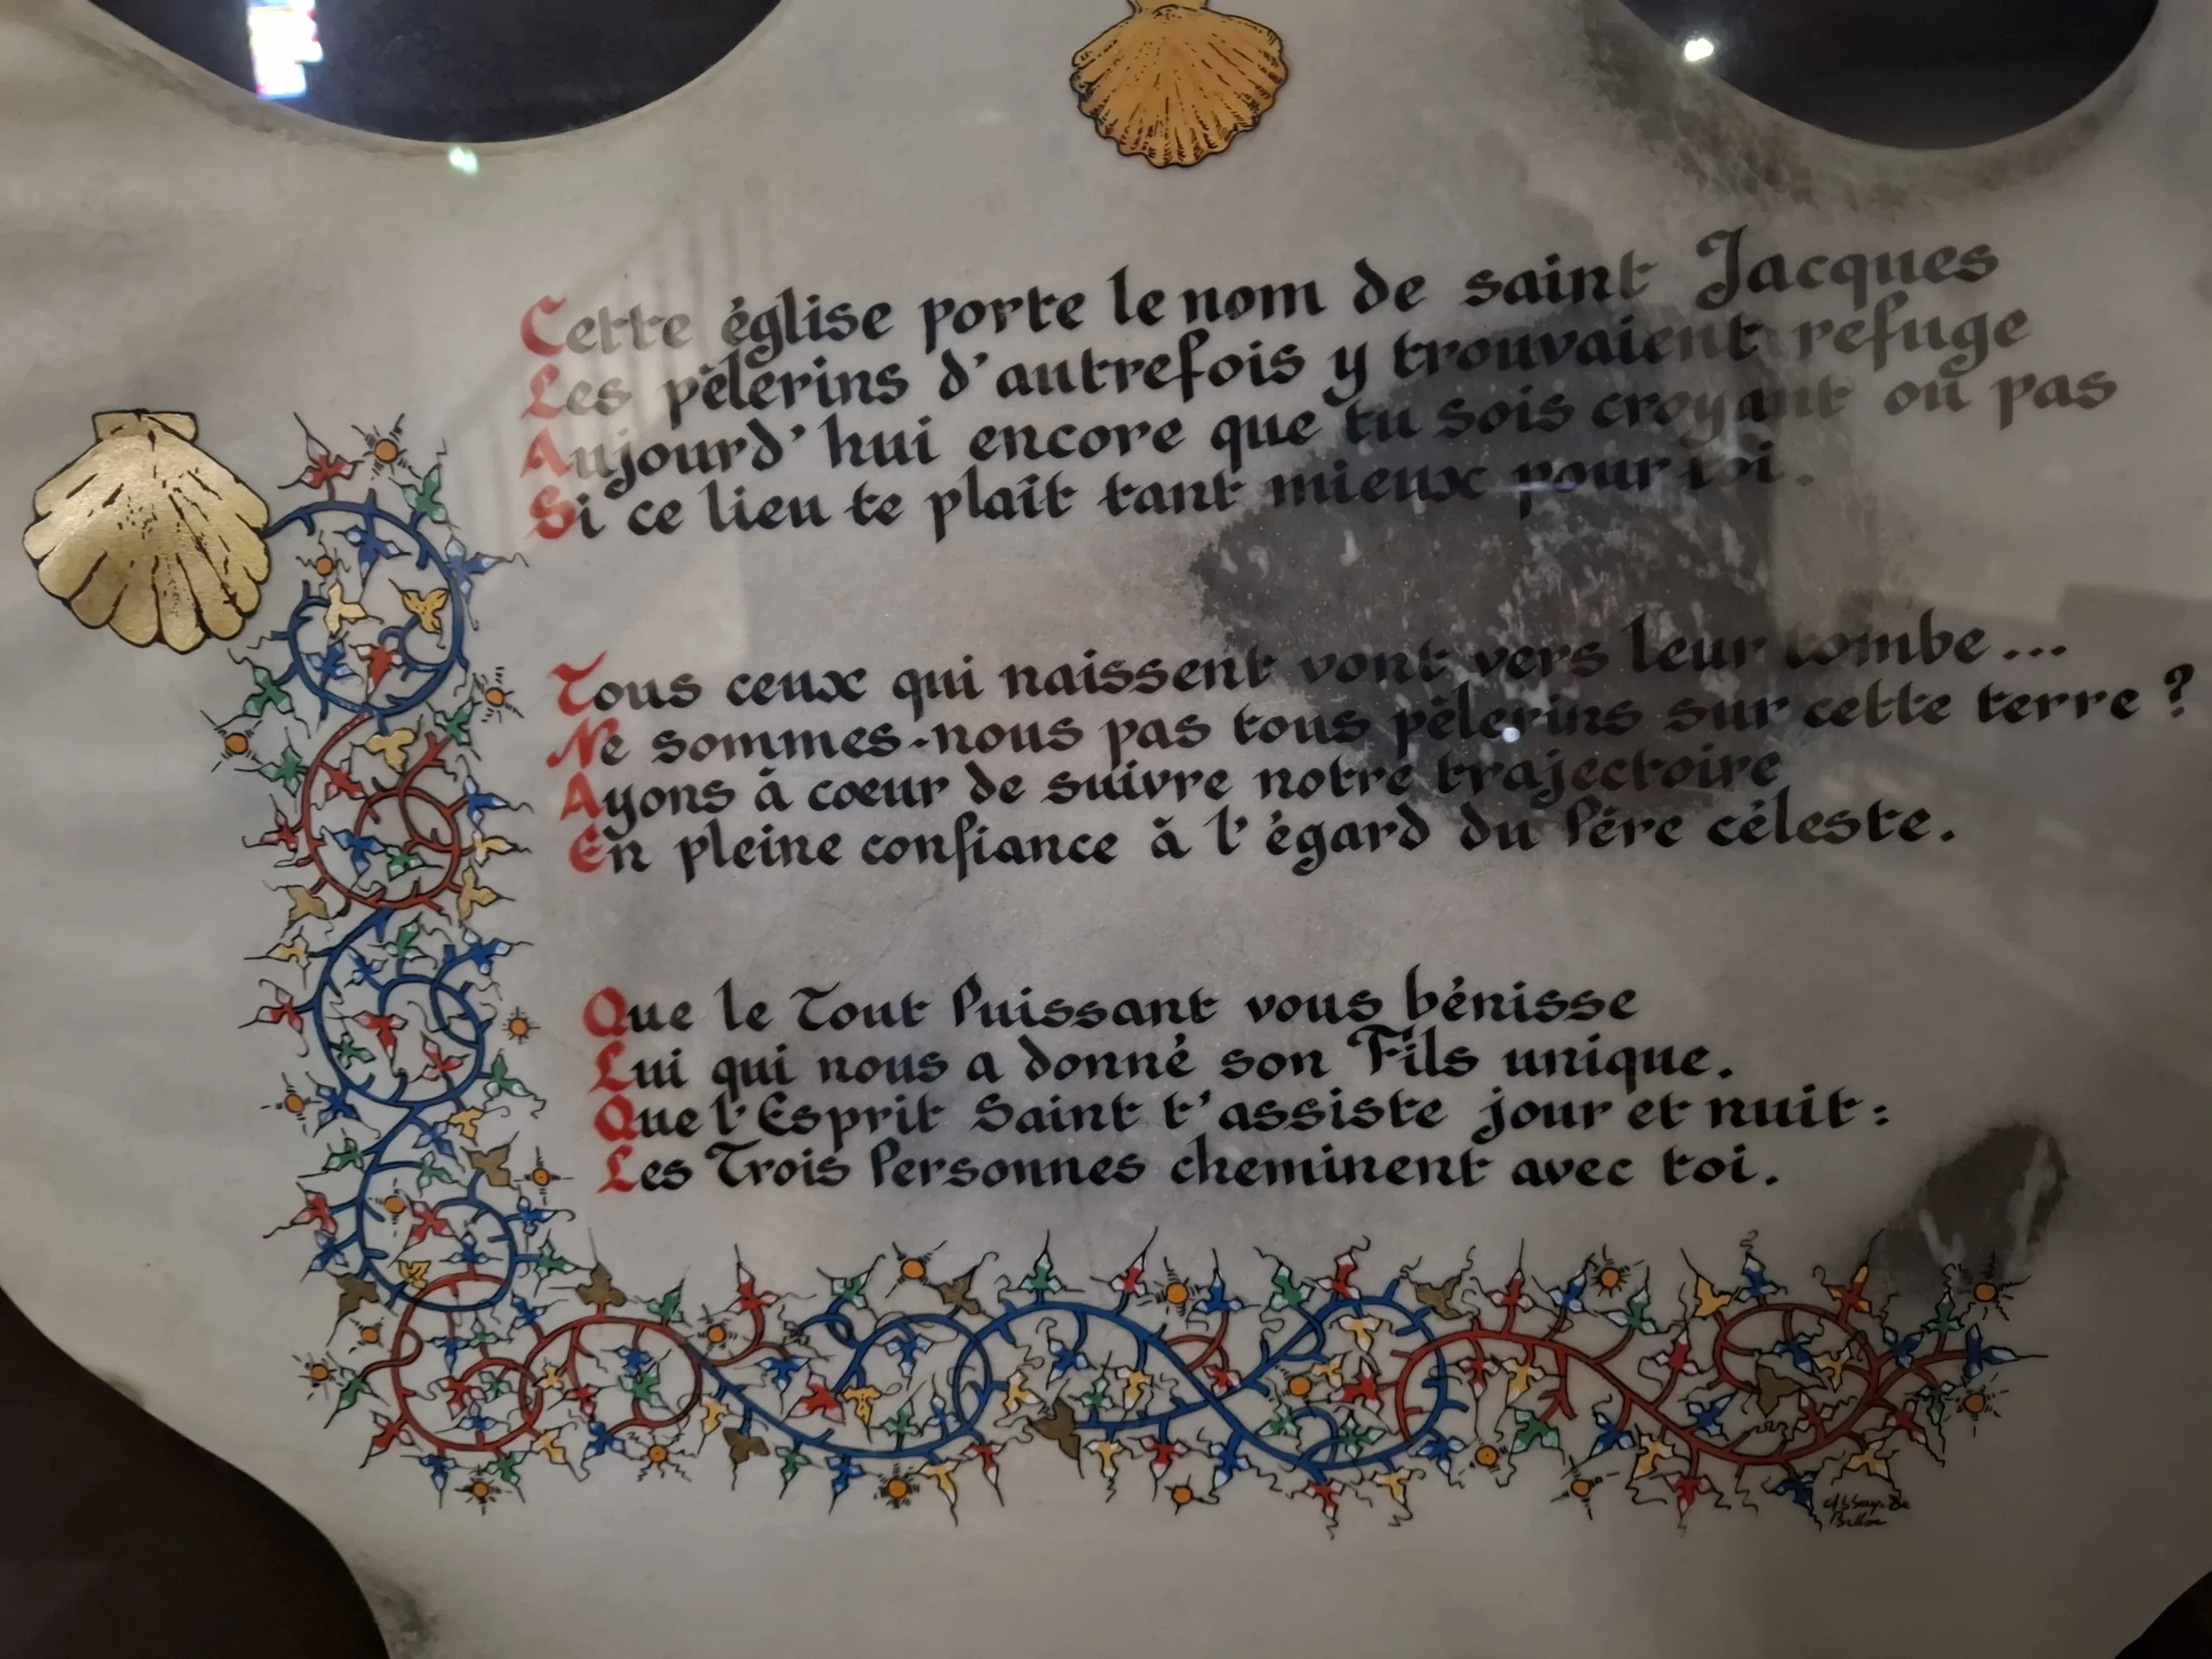 Cette église porte le nom de saint Jacques
Les pèlerins d'autrefois y trouvaient refuge
Aujourd'hui encore que tu sois croyant ou pas
Si ce lieu te plaît tant mieux pour toi.
Tous ceux qui naissent vont vers leur tombe...
Ne sommes-nous pas tous pèlerins sur cette terre ?
Ayons à coeur de suivre notre trajectoire
En pleine confiance à l'égard du Père céleste.
Que le Tout Puissant vous bénisse
Lui qui nous a donné son Fils unique.
Que l'Esprit Saint t'assiste jour et nuit :
Les Trois Personnes cheminent avec toi.
Abbaye de
Belloc